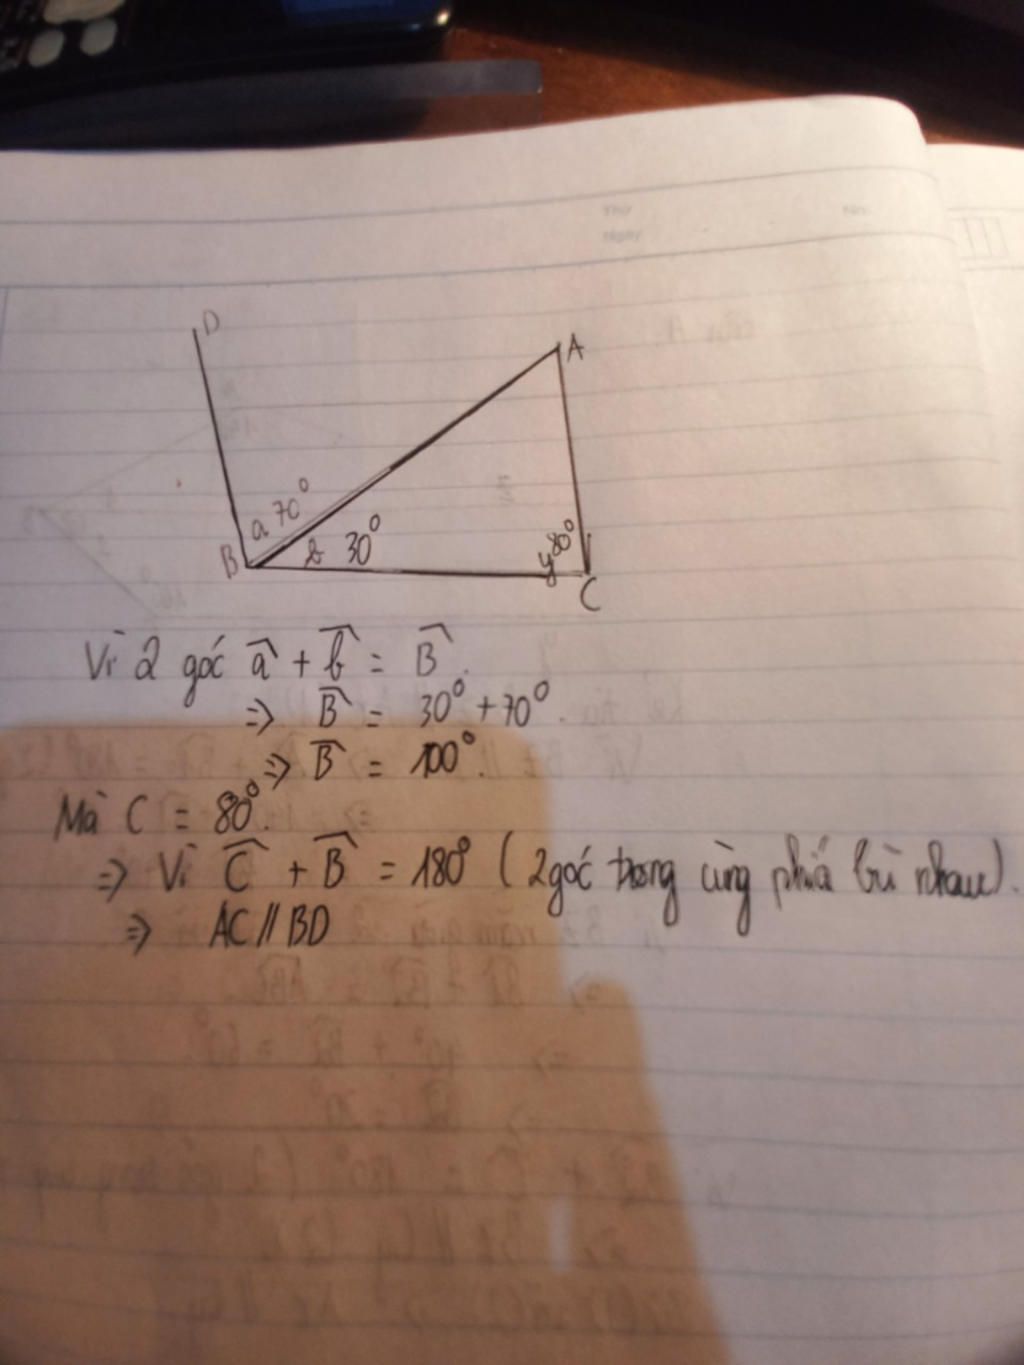 Thứ
No.
Ngày
D
A
a 70°
B
b 30°
y 80°
C
Vì 2 góc a + b = B.
=> B = 30° + 70°
=> B = 100°.
Mà C = 80°.
=> Vì C + B = 180° (2 góc trong cùng phía bù nhau).
=> AC // BD